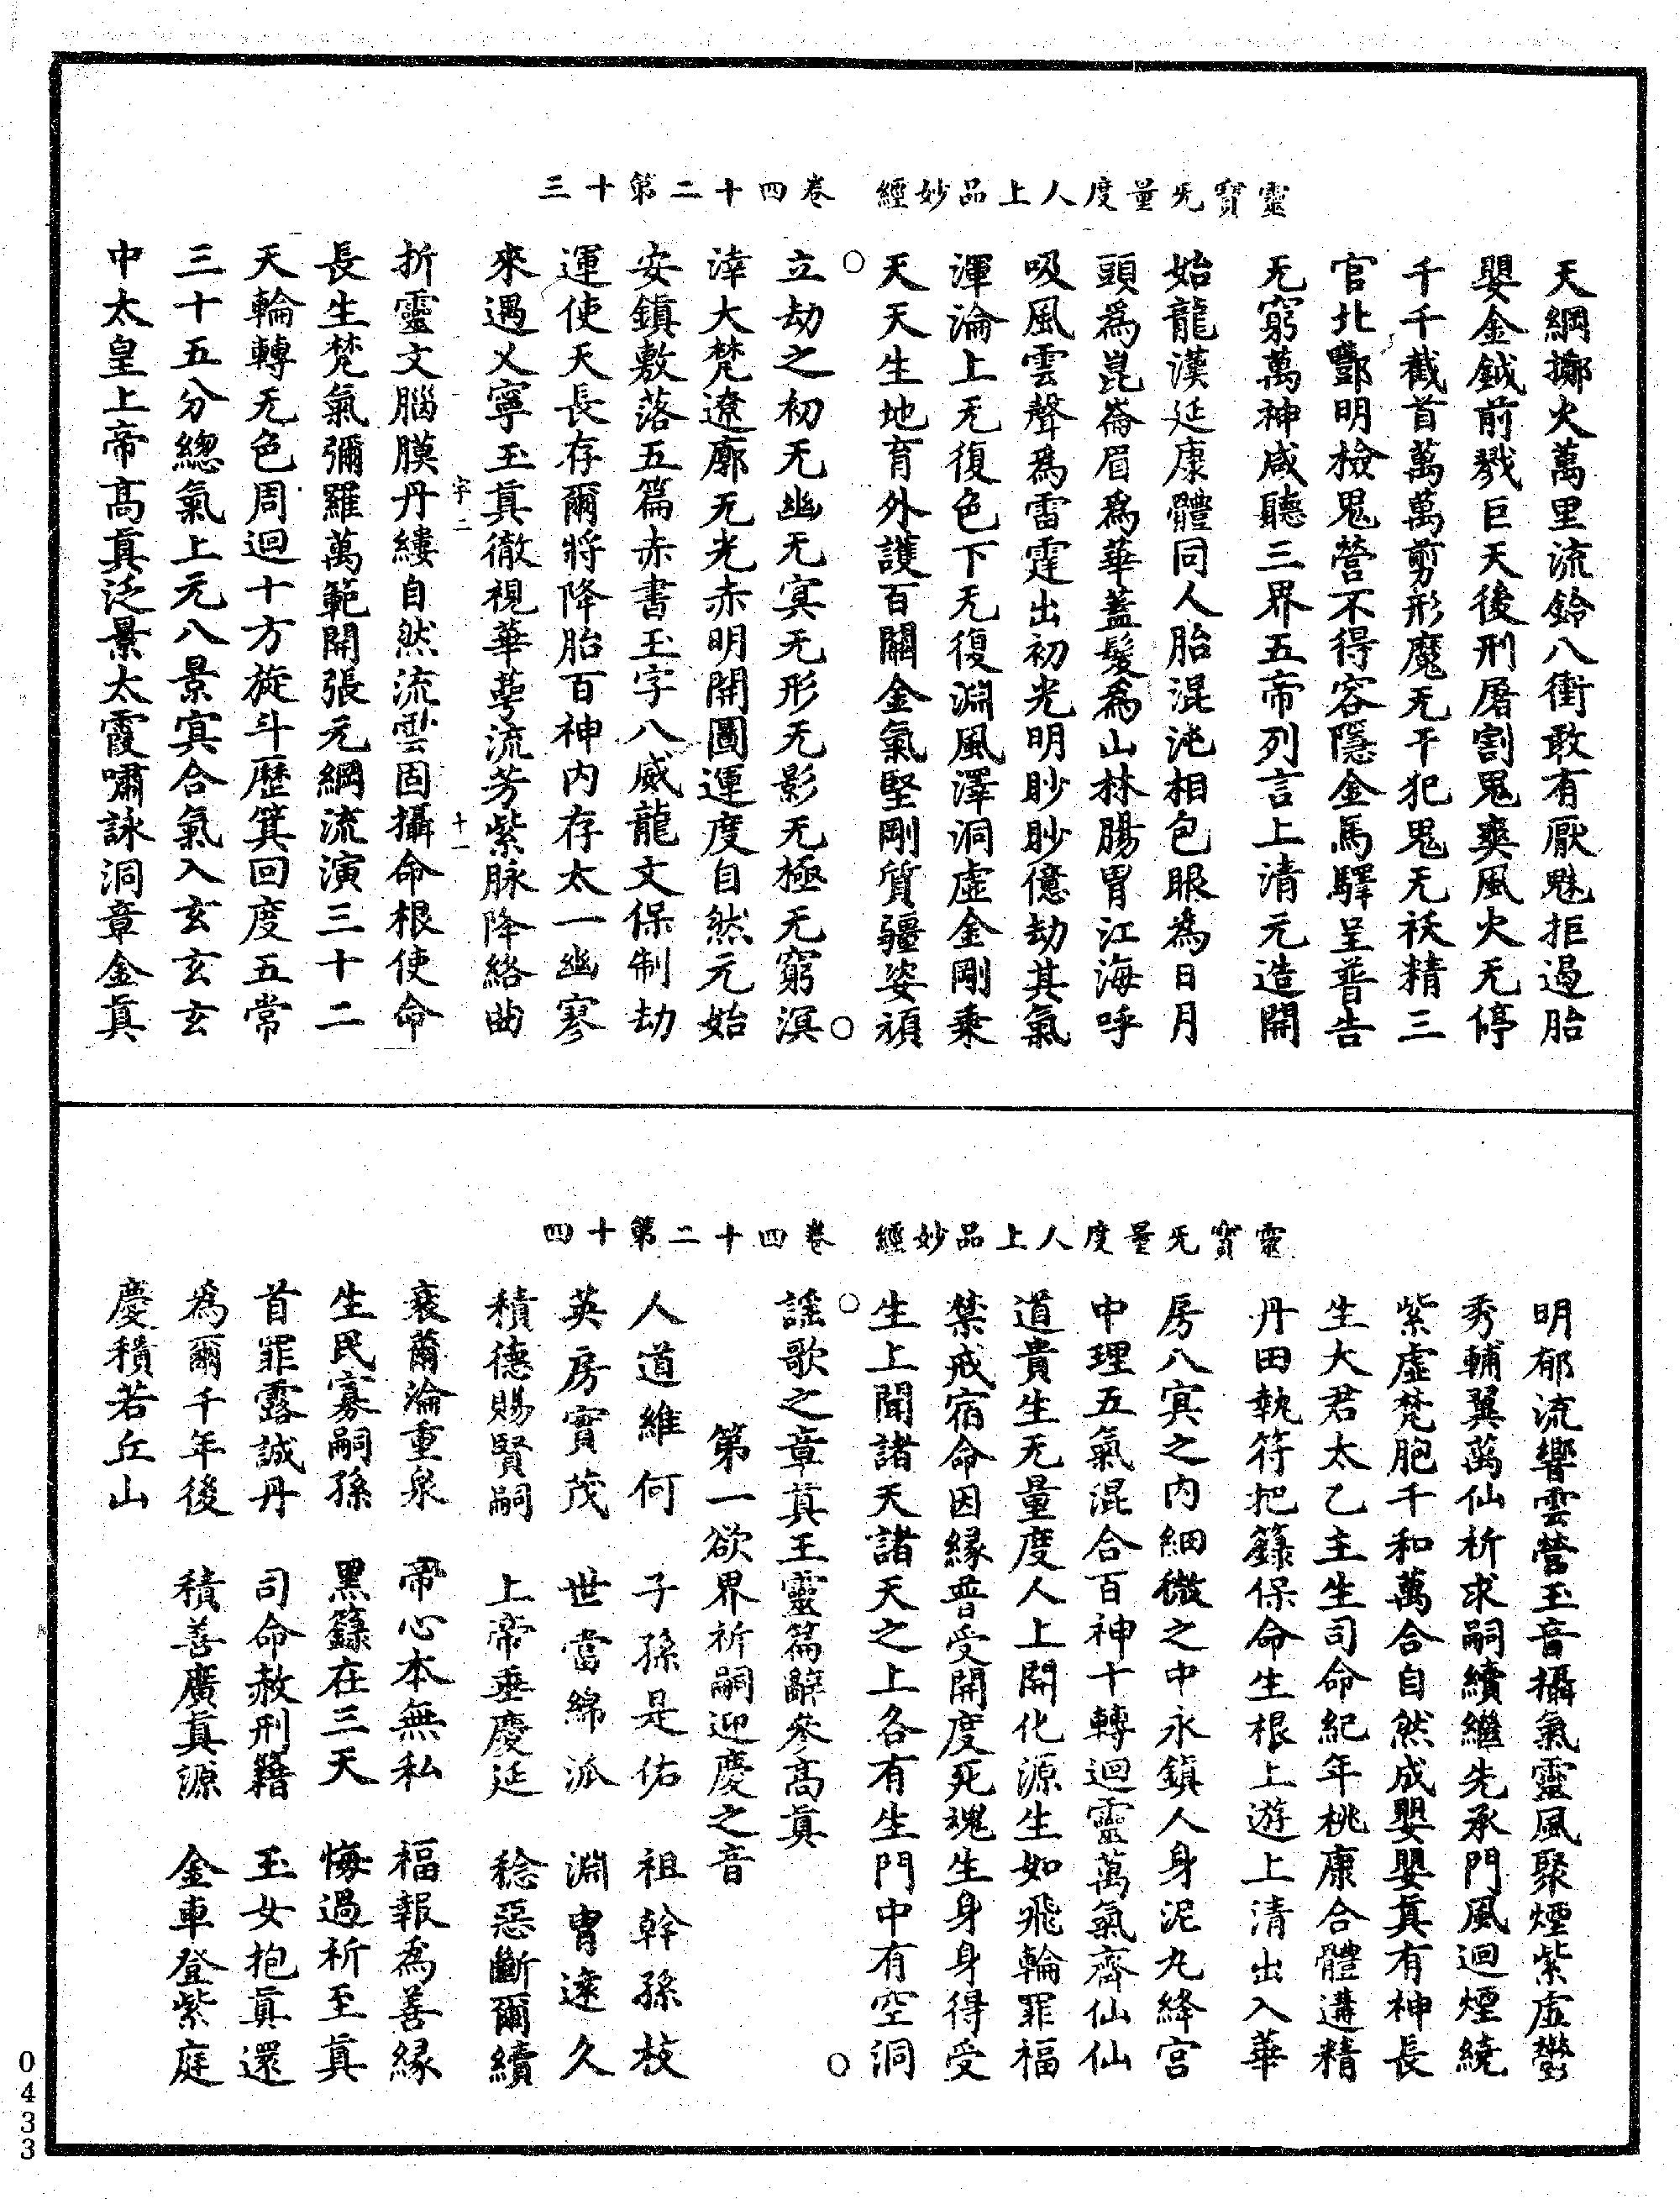 靈寶无量度人上品妙經　卷四十二第十三
天綱擲火萬里流鈴八衝敢有厭魅拒遏胎
嬰金鉞前戮巨天後刑屠割鬼爽風火无停
千千截首萬萬剪形魔无干犯鬼无袄精三
官北酆明檢鬼營不得容隱金馬驛呈普告
无窮萬神咸聽三界五帝列言上清元造開
始龍漢延康體同人胎混沌相包眼為日月
頭為崑崙眉為華蓋髮為山林腸胃江海呼
吸風雲聲為雷霆出初光明眇眇億劫其氣
渾淪上无復色下无復淵風澤洞虛金剛乘
天天生地育外護百關金氣堅剛質疆姿頑
立劫之初无幽无冥无形无影无極无窮溟
涬大梵遼廓无光赤明開圖運度自然元始
安鎮敷落五篇赤書玉字八威龍文保制劫
運使天長存爾將降胎百神內存太一幽寥
來遇乂寧玉真徹視華萼流芳紫脉降絡曲
字二　十一
折靈文腦膜丹縷自然流雲固攝命根使命
長生梵氣彌羅萬範開張元綱流演三十二
天輪轉无色周迴十方旋斗歷箕回度五常
三十五分總氣上元八景冥合氣入玄玄
中太皇上帝高真泛景太霞嘯詠洞章金真
靈寶无量度人上品妙經　卷四十二第十四
明郁流響雲營玉音攝氣靈風聚煙紫虛鬱
秀輔翼萬仙祈求嗣續繼先承門風迴煙繞
紫虛梵胞千和萬合自然成嬰嬰真有神長
生大君太乙主生司命紀年桃康合體遘精
丹田執符把籙保命生根上遊上清出入華
房八冥之內細微之中永鎮人身泥丸絳宮
中理五氣混合百神十轉迴靈萬氣齊仙仙
道貴生无量度人上開化源生如飛輪罪福
禁戒宿命因緣普受開度死魂生身身得受
生上聞諸天諸天之上各有生門中有空洞
謠歌之章真王靈篇辭參高真
第一欲界祈嗣迎慶之音
人道維何　子孫是佑　祖幹孫枝
英房實茂　世當綿派　淵胄遠久
積德賜賢嗣　上帝垂慶延　稔惡斷爾續
衰薾淪重泉　帝心本無私　福報為善緣
生民寡嗣孫　黑籙在三天　悔過祈至真
首罪露誠丹　司命赦刑籍　玉女抱真還
為爾千年後　積善廣真源　金車登紫庭
慶積若丘山
0433